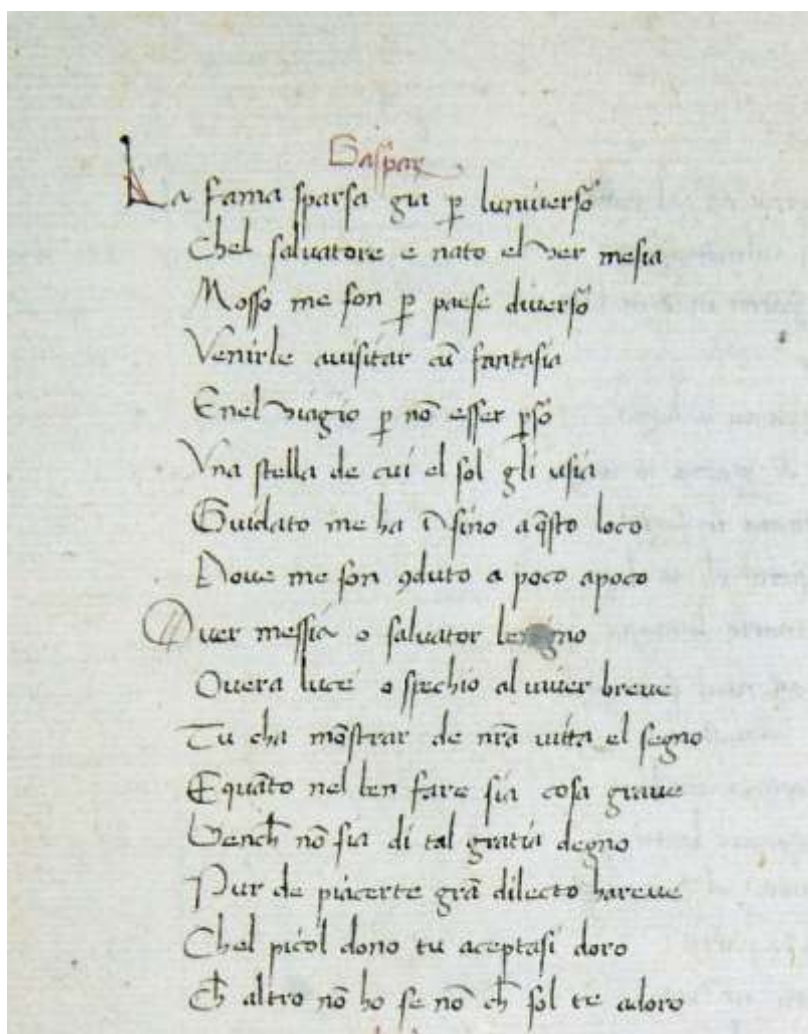 Gaspar
La fama sparsa gia ꝑ luniverso
Chel salvatore e nato el ver mesia
Mosso me son ꝑ paese diverso
Venirle avisitar cū fantasia
Enel viagio ꝑ nō esser ꝑso
Vna stella de cui el sol gli usia
Guidato me ha īsino aq̄sto loco
Dove me son ꝯduto a poco apoco
Over messia o salvator benigno
Overa luce o spechio al viver breve
Tu cha mōstrar de nr̄a vitta el segno
Equāto nel ben fare sia cosa grave
Bench̄ nō sia di tal gratia degno
Pur de piacerte grā dilecto hareve
Chel picol dono tu aceptasi doro
Ch̄ altro nō ho se nō ch̄ sol te adoro